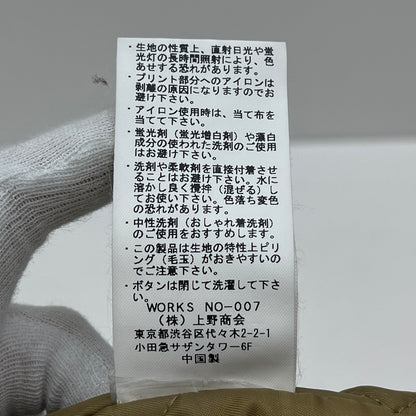 ・生地の性質上、直射日光や蛍
光灯の長時間照射により、色
あせする恐れがあります。
・プリント部分へのアイロンは
剥離の原因になりますのでお
避け下さい。
・アイロン使用時は、当て布を
当てて下さい。
・蛍光剤(蛍光増白剤)や漂白
成分の使われた洗剤のご使用
はお避け下さい。
・洗剤や柔軟剤を直接付着させ
ることはお避け下さい。水に
溶かし良く攪拌(混ぜる)し
てお使い下さい。色落ち変色
の恐れがあります。
・中性洗剤(おしゃれ着洗剤)
のご使用をおすすめします。
・この製品は生地の特性上ピリ
ング(毛玉)がおきやすいの
でご注意下さい。
・ボタンは閉じて洗濯して下さ
い。
WORKS NO-007
(株)上野商会
東京都渋谷区代々木2-2-1
小田急サザンタワー6F
中国製